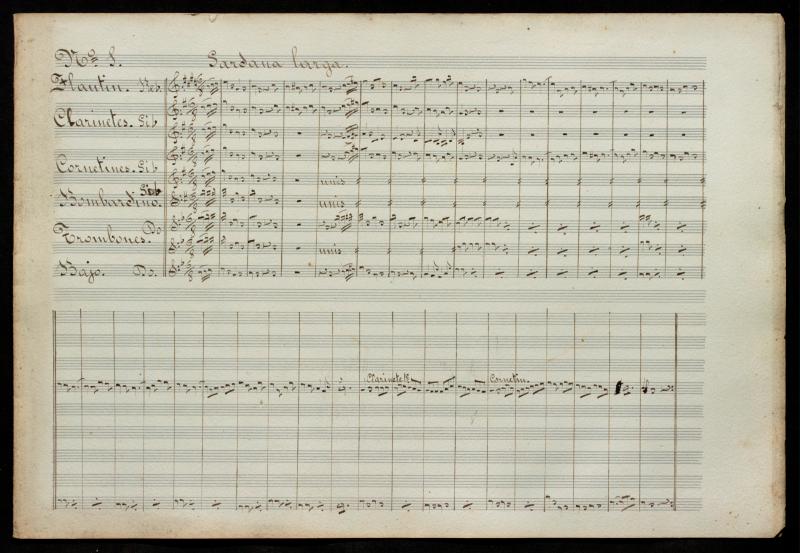 Nº 1. Sardana larga.
Flautin. Reb.
Clarinetes. Sib
Cornetines. Sib
Bombardino. Sib
Trombones. Do
Bajo. Do.
unis
unis
unis
Clarinete 1º Cornetin.